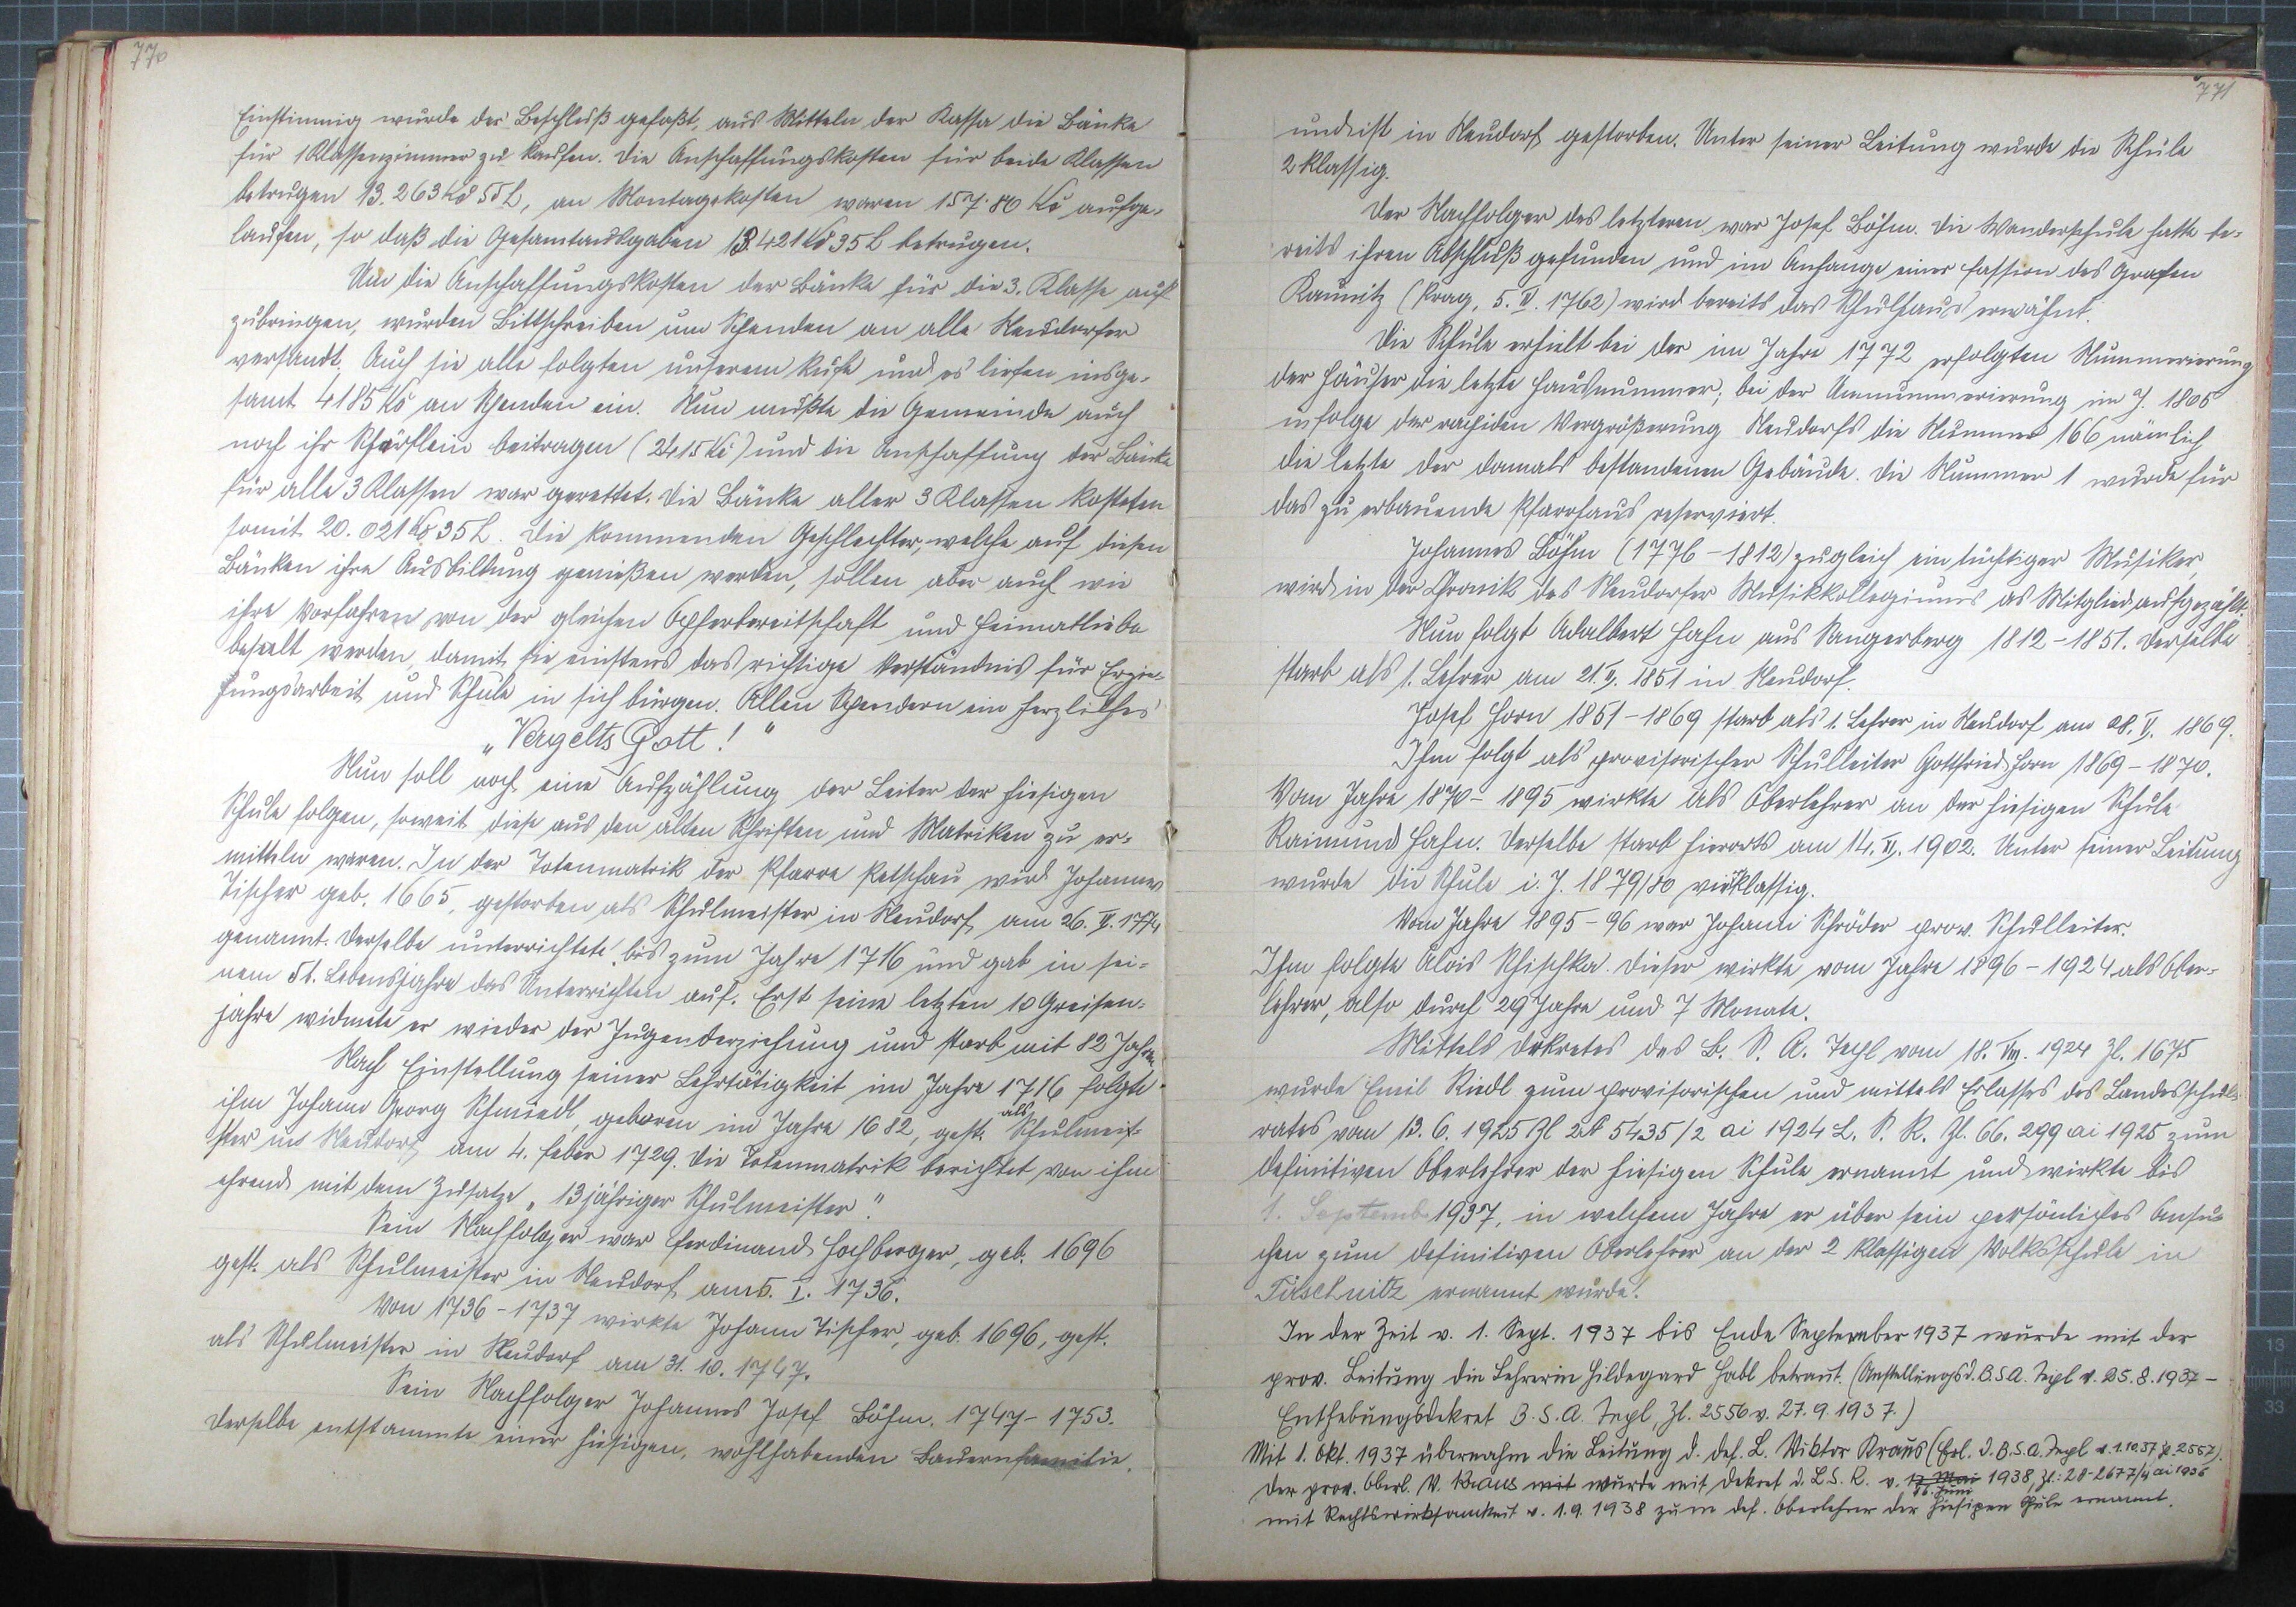 770
Einstimmig wurde der Beschluß gefaßt, aus Mitteln der Kassa die Bänke
für 1 Klassenzimmer zu kaufen. Die Anschaffungskosten für beide Klassen
betrugen 13.263 Kč 55 h, an Montagekosten waren 157·80 Kč aufge-
laufen, so daß die Gesamtausgaben 13.421 Kč 35 h betrugen.
Um die Anschaffungskosten der Bänke für die 3. Klasse auf
zubringen, wurden Bittschreiben um Spenden an alle Neudorfer
versandt. Auch sie alle folgten unserem Rufe und es liefen insge-
samt 4185 Kč an Spenden ein. Nun mußte die Gemeinde auch
noch ihr Schärflein beitragen (2415 Kč) und die Anschaffung der Bänke
für alle 3 Klassen war gerettet. Die Bänke aller 3 Klassen kosteten
somit 20.021 Kč 35 h. Die kommenden Geschlechter, welche auf diesen
Bänken ihre Ausbildung genießen werden, sollen aber auch wie
ihre Vorfahren von der gleichen Opferbereitschaft und Heimatliebe
beseelt werden, damit sie einstens das richtige Verständnis für Erzie-
hungsarbeit und Schule in sich bürgen. Allen Spendern ein herzliches
„Vergelts Gott!"
Nun soll noch eine Aufzählung der Leiter der hiesigen
Schule folgen, soweit diese aus den alten Schriften und Matriken zu er-
mitteln waren. In der Totenmatrik der Pfarre Petschau wird Johannes
Tischer geb. 1665, gestorben als Schulmeister in Neudorf am 26. 1774
genannt. Derselbe unterrichtete bis zum Jahre 1716 und gab in sei-
nem 51. Lebensjahre das Unterrichten auf. Erst seine letzten 10 Greisen-
jahre widmete er wieder der Jugenderziehung und starb mit 82 Jahren.
Nach Einstellung seiner Lehrtätigkeit im Jahre 1716 folgte
ihm Johann Georg Schmiedl, geboren im Jahre 1682, gest. als Schulmeis-
ter in Neudorf am 4. Feber 1729. Die Totenmatrik berichtet von ihm
ehrend mit dem Zusatze „13jähriger Schulmeister."
Sein Nachfolger war Ferdinand Hochberger, geb. 1696
gest. als Schulmeister in Neudorf am 5. I. 1736.
Von 1736-1737 wirkte Johann Tischer, geb. 1696, gest.
als Schulmeister in Neudorf am 31. 10. 1747.
Sein Nachfolger Johannes Josef Böhm. 1747-1753.
Derselbe entstammte einer hiesigen, wohlhabenden Bauernfamilie
771
und ist in Neudorf gestorben. Unter seiner Leitung wurde die Schule
2 klassig.
Der Nachfolger des letzteren war Josef Böhm. Die Wanderschule hatte be-
reits ihren Abschluß gefunden und im Anfange einer Fassion des Grafen
Kaunitz (Prag, 5. 1762) wird bereits das Schulhaus erwähnt.
Die Schule erhielt bei der im Jahre 1772 erfolgten Nummerierung
der Häuser die letzte Hausnummer; bei der Umnummerierung im J. 1805
infolge der rapiden Vergrößerung Neudorfs die Nummer 166 nämlich
die letzte der damals bestandenen Gebäude. Die Nummer 1 wurde für
das zu erbauende Pfarrhaus reserviert.
Johannes Böhm (1776-1812) zugleich ein tüchtiger Musiker,
wird in der Chronik des Neudorfer Musikkollegiums als Mitglied aufgezählt.
Nun folgt Adalbert Hahn aus Sangerberg 1812-1851. Derselbe
starb als 1. Lehrer am 21. 1851 in Neudorf.
Josef Horn 1851-1869 starb als 1. Lehrer in Neudorf am 28. V. 1869.
Ihm folgt als provisorischer Schulleiter Gottfried Horn 1869-1870.
Vom Jahre 1870-1895 wirkte als Oberlehrer an der hiesigen Schule
Raimund Hahn. Derselbe starb hierorts am 14. 1902. Unter seiner Leitung
wurde die Schule i. J. 1879/80 vierklassig.
Vom Jahre 1895-96 war Johann Schröder prov. Schulleiter.
Ihm folgte Alois Schischka. Dieser wirkte vom Jahre 1896-1924 als Ober-
lehrer, also durch 29 Jahre und 7 Monate.
Mittels Dekretes des B. S. A. Tepl vom 18. VIII. 1924 Zl. 1675
wurde Emil Riedl zum provisorischen und mittels Erlasses des Landesschul-
rates vom 13. 6. 1925 Zl 5435/2 ai 1924 L. S. R. Zl. 66.299 ai 1925 zum
definitiven Oberlehrer der hiesigen Schule ernannt und wirkte bis
1. Septemb 1937, in welchem Jahre er über sein persönliches Ansu-
chen zum definitiven Oberlehrer an der 2 klassigen Volksschule in
Tirschnitz ernannt wurde.
In der Zeit v. 1. Sept. 1937 bis Ende September 1937 wurde mit der
prov. Leitung die Lehrerin Hildegard Habl betraut. (Anstellungsd. B.S.A. Tepl v. 25.8.1937 -
Enthebungsdekret B. S. A. Tepl, Zl. 2556 v. 27. 9. 1937.)
Mit 1. Okt. 1937 übernahm die Leitung d. def. L. Viktor Kraus (Erl. d. B.S.A. Tepl v. 1.10.37 Zl. 2557).
Der prov. Oberl. V. Kraus mit wurde mit Dekret d. L. S. R. v. 17. Mai 16. Juni 1938, Zl.: 28-2677/4 ai 1938
mit Rechtswirksamkeit v. 1. 9. 1938 zum def. Oberlehrer der hiesigen Schule ernannt.